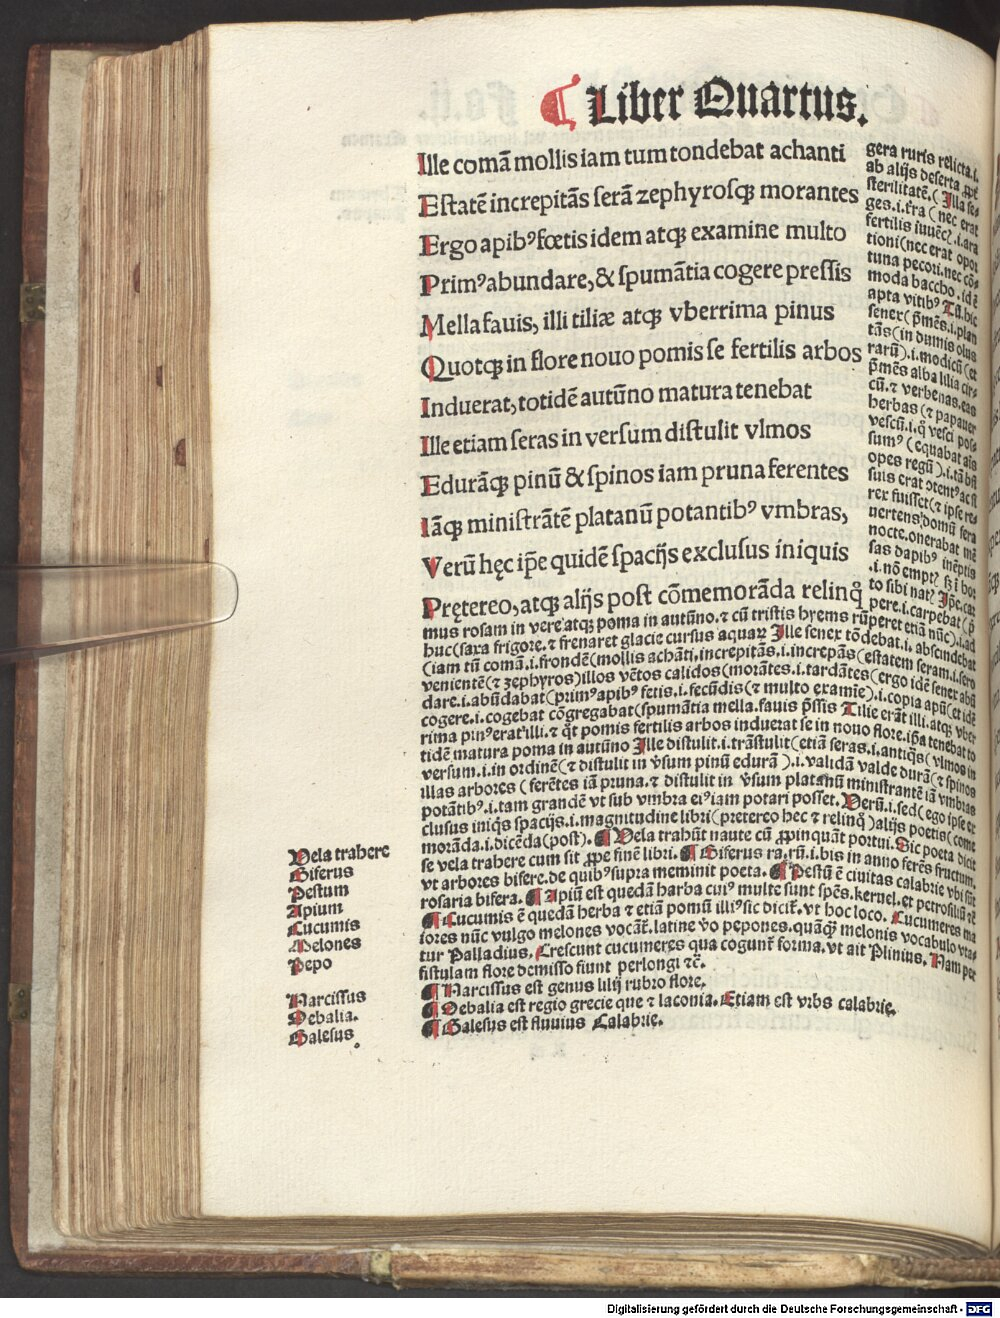 ¶ Liber Quartus.
Ille comã mollis iam tum tondebat achanti
Estatẽ increpitãs serã zephyrosqꝫ morantes
Ergo apibꝰ fœtis idem atqꝫ examine multo
Primꝰ abundare, & spumãtia cogere pressis
Mella fauis, illi tiliæ atqꝫ vberrima pinus
Quotqꝫ in flore nouo pomis se fertilis arbos
Induerat, totidẽ autũno matura tenebat
Ille etiam seras in versum distulit vlmos
Edurãqꝫ pinũ & spinos iam pruna ferentes
Iãqꝫ ministrãtẽ platanũ potantibꝰ vmbras,
Verũ hęc ip̃e quidẽ spacijs exclusus iniquis
Prętereo, atqꝫ alijs post cõmemorãda relinq̃
gera ruris relicta.i.
ab alijs deserta ꝓpt
sterilitatẽ.( Illa se-
ges.i.tr̃a ( nec erat
fertilis iuuẽc?.i.ara
tioni(nec erat opor
tuna pecori.nec cõ-
moda baccho.idẽ
apta vitibꝰ Tñ.hic
senex( p̃mẽs.i.plan
tãs(in dumis olus
rarũ).i.modicũ(et
p̃mẽs alba lilia cir-
cũ.⁊ verbenas.eas
herbas (⁊ papauer
vescũ.i.q̃ vesci pos-
sumꝰ (equabat aĩs
opes regũ).i.tã
suis erat ↄtentꝰ ac si
rex fuisset(⁊ ipse re-
uertens domũ sera
nocte.onerabat mẽ
sas dapibꝰ inẽptis
.i.nõ empt? sꝫ ĩ hor
to sibi nat? Ip̃e.car
pere.i.carpebat (p̃
mus rosam in vere atqꝫ poma in autũno.⁊ cũ tristis hyems rũperet etiã nũc).i.ad
huc(saxa frigore.⁊ frenaret glacie cursus aquaꝝ Ille senex tõdebat.i. abscindebat
(iam tũ comã.i.frondẽ(mollis achãti.increpitãs.i.increpãs(estatem seram.i.sero
venientẽ(⁊ zephyros)illos vẽtos calidos(morãtes.i.tardãtes(ergo idẽ senex abũ
dare.i.abũdabat(primꝰ apibꝰ fetis.i.fecũdis(⁊ multo examĩe).i.copia apũ(et idẽ
cogere.i.cogebat cõgregabat(spumãtia mella.fauis p̃ssis Tilie erãt illi.atqꝫ vber
rima pinꝰ erat illi.⁊ q̃t pomis fertilis arbos induerat se in nouo flore.ip̃a tenebat to
tidẽ matura poma in autũno Ille distulit.i.trãstulit(etiã seras.i.antiq̃s( vlmos in
versum.i.in ordinẽ(⁊ distulit in ṽsum pinũ edurã ).i.validã valde durã(⁊ spinos
illas arbores ( ferẽtes iã pruna.⁊ distulit in ṽsum platanũ ministrantẽ iã vmbras
potãtibꝰ.i.tam grandẽ vt sub vmbra eiꝰ iam potari posset. Verũ.i.sed(ego ipse ex
clusus iniq̃s spacijs.i.magnitudine libri(pretereo hec ⁊ relinq̃)alijs poetis(come
morãda.i.dicẽda(post). ¶ Vela trahũt naute cũ ꝓpinquãt portui. Sic poeta dicit
se vela trahere cum sit ꝓpe finẽ libri. ¶ Biferus ra.rũ.i.bis in anno ferẽs fructum.
vt arbores bifere.de quibꝰ supra meminit poeta. ¶ Pestũ ẽ ciuitas calabrie vbi sũt
rosaria bifera. ¶ Apiũ est quedã harba cuiꝰ multe sunt spẽs.kernel.et petrosiliũ ⁊c̃
¶ Cucumis ẽ quedã herba ⁊ etiã pomũ illiꝰ sic dicit̃.vt hoc loco. Cucumeres ma
iores nũc vulgo melones vocãt̃.latine ṽo pepones.quãqꝫ melonis vocabulo vta-
tur Palladius. Crescunt cucumeres qua cogunt̃ forma.vt ait Plinius. Nam per
fistulam flore demisso fiunt perlongi ⁊c̃.
¶ Narcissus est genus lilij rubro flore.
¶ Debalia est regio grecie que ⁊ laconia. Etiam est vrbs calabrie.
¶ Galesus est fluuius Calabrie.
Vela trahere
Biferus
Pestum
Apium
Cucumis
Melones
Pepo
Narcissus
Debalia.
Galesus.
Digitalisierung gefördert durch die Deutsche Forschungsgemeinschaft - DFG